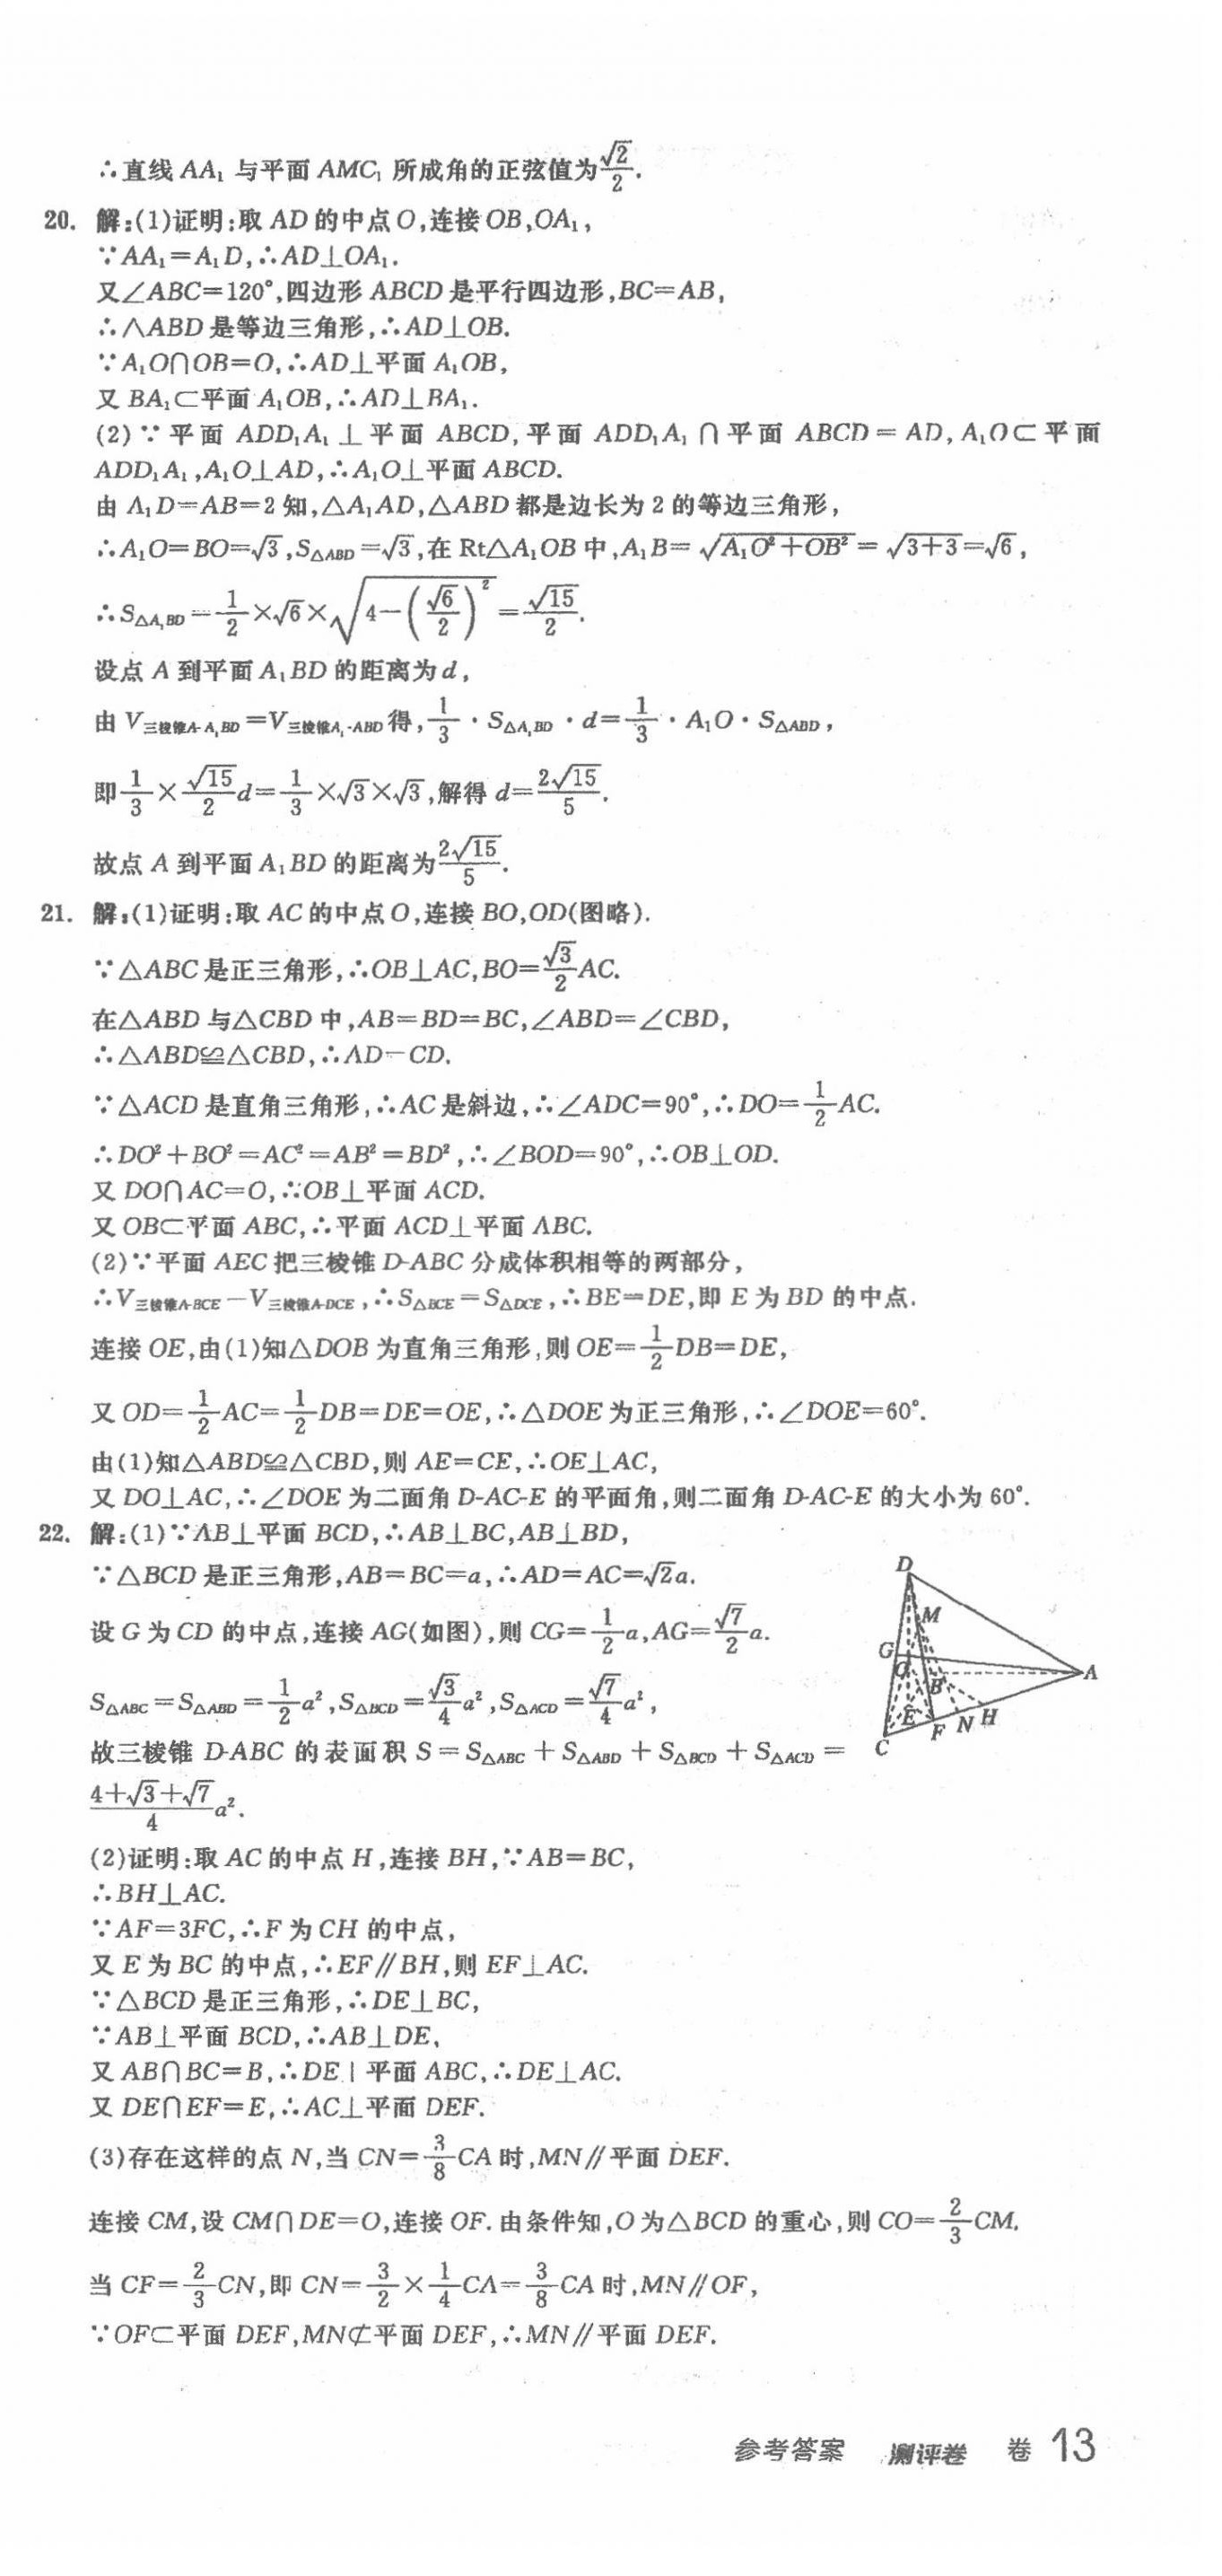 ∴直线 AA₁ 与平面 AMC₁ 所成角的正弦值为√2/2.
20. 解:(1)证明:取 AD 的中点 O,连接 OB,OA₁,
∵AA₁=A₁D,∴AD⊥OA₁.
又∠ABC=120°,四边形 ABCD 是平行四边形,BC=AB,
∴△ABD 是等边三角形,∴AD⊥OB.
∵A₁O∩OB=O,∴AD⊥平面 A₁OB,
又 BA₁⊂平面 A₁OB,∴AD⊥BA₁.
(2)∵平面 ADD₁A₁⊥平面 ABCD,平面 ADD₁A₁∩平面 ABCD=AD,A₁O⊂平面
ADD₁A₁,A₁O⊥AD,∴A₁O⊥平面 ABCD.
由 A₁D=AB=2 知,△A₁AD,△ABD 都是边长为 2 的等边三角形,
∴A₁O=BO=√3,S△ABD=√3,在 Rt△A₁OB 中,A₁B=√(A₁O²+OB²)=√(3+3)=√6,
∴S△A₁BD=1/2×√6×√(4-(√6/2)²)=√15/2.
设点 A 到平面 A₁BD 的距离为 d,
由 V三棱锥A-A₁BD=V三棱锥A₁-ABD得,1/3·S△A₁BD·d=1/3·A₁O·S△ABD,
即1/3×√15/2 d=1/3×√3×√3,解得 d=2√15/5.
故点 A 到平面 A₁BD 的距离为2√15/5.
21. 解:(1)证明:取 AC 的中点 O,连接 BO,OD(图略).
∵△ABC 是正三角形,∴OB⊥AC,BO=√3/2 AC.
在△ABD 与△CBD 中,AB=BD=BC,∠ABD=∠CBD,
∴△ABD≌△CBD,∴AD=CD.
∵△ACD 是直角三角形,∴AC 是斜边,∴∠ADC=90°,∴DO=1/2 AC.
∴DO²+BO²=AC²=AB²=BD²,∴∠BOD=90°,∴OB⊥OD.
又 DO∩AC=O,∴OB⊥平面 ACD.
又 OB⊂平面 ABC,∴平面 ACD⊥平面 ABC.
(2)∵平面 AEC 把三棱锥 D-ABC 分成体积相等的两部分,
∴V三棱锥A-BCE=V三棱锥A-DCE,∴S△BCE=S△DCE,∴BE=DE,即 E 为 BD 的中点.
连接 OE,由(1)知△DOB 为直角三角形,则 OE=1/2 DB=DE,
又 OD=1/2 AC=1/2 DB=DE=OE,∴△DOE 为正三角形,∴∠DOE=60°.
由(1)知△ABD≌△CBD,则 AE=CE,∴OE⊥AC,
又 DO⊥AC,∴∠DOE 为二面角 D-AC-E 的平面角,则二面角 D-AC-E 的大小为 60°.
22. 解:(1)∵AB⊥平面 BCD,∴AB⊥BC,AB⊥BD,
∵△BCD 是正三角形,AB=BC=a,∴AD=AC=√2a.
设 G 为 CD 的中点,连接 AG(如图),则 CG=1/2 a,AG=√7/2 a.
S△ABC=S△ABD=1/2 a²,S△BCD=√3/4 a²,S△ACD=√7/4 a²,
故三棱锥 D-ABC 的表面积 S=S△ABC+S△ABD+S△BCD+S△ACD=
(4+√3+√7)/4 a².
D
M
G
O
A
B
E
F
N
H
C
(2)证明:取 AC 的中点 H,连接 BH,∵AB=BC,
∴BH⊥AC.
∵AF=3FC,∴F 为 CH 的中点,
又 E 为 BC 的中点,∴EF∥BH,则 EF⊥AC.
∵△BCD 是正三角形,∴DE⊥BC,
∵AB⊥平面 BCD,∴AB⊥DE,
又 AB∩BC=B,∴DE⊥平面 ABC,∴DE⊥AC.
又 DE∩EF=E,∴AC⊥平面 DEF.
(3)存在这样的点 N,当 CN=3/8 CA 时,MN∥平面 DEF.
连接 CM,设 CM∩DE=O,连接 OF. 由条件知,O 为△BCD 的重心,则 CO=2/3 CM.
当 CF=2/3 CN,即 CN=3/2×1/4 CA=3/8 CA 时,MN∥OF,
∵OF⊂平面 DEF,MN⊄平面 DEF,∴MN∥平面 DEF.
参考答案 测评卷 卷 13